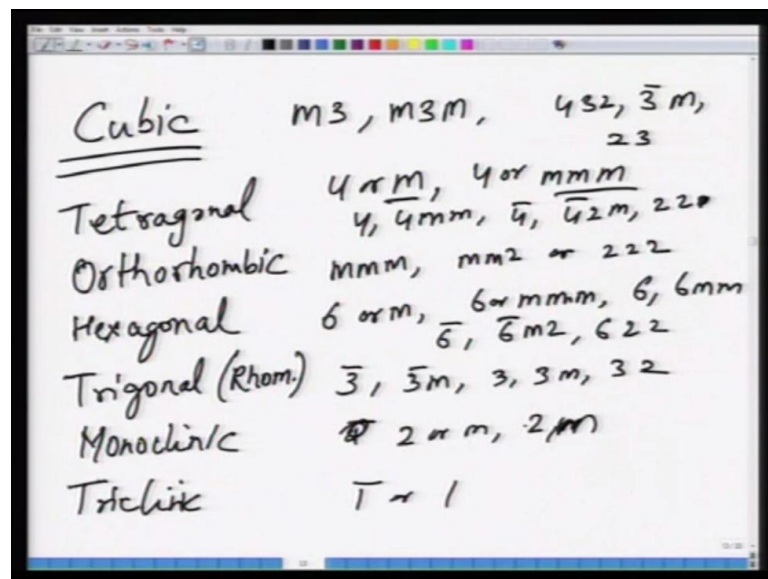 File Edit View Insert Actions Tools Help
Cubic m3, m3m, 432, 3̅m,
23
Tetragonal 4 or m, 4 or mmm
4, 4mm, 4̅, 4̅2m, 22
Orthorhombic mmm, mm2 or 222
Hexagonal 6 or m, 6 or mmm, 6, 6mm
6̅, 6̅m2, 622
Trigonal (Rhom.) 3̅, 3̅m, 3, 3m, 32
Monoclinic 2 or m, 2, m
Triclinic 1̅ or 1